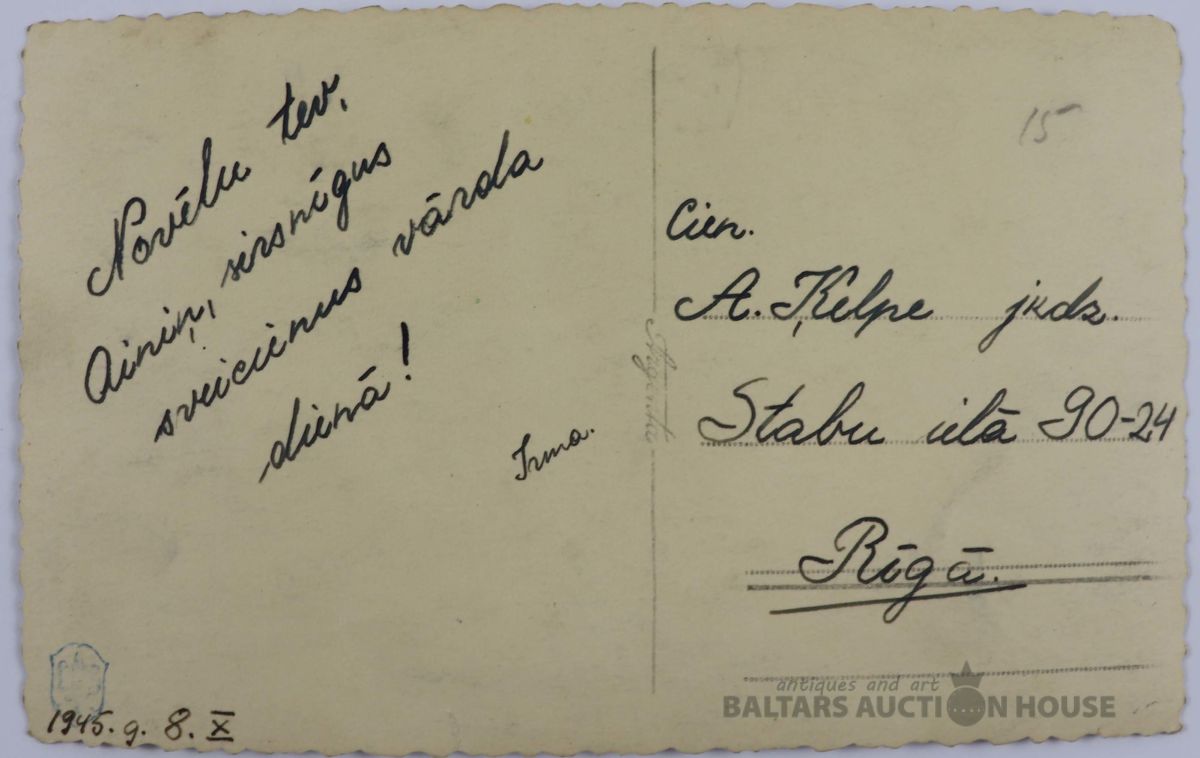 Novēlu tev,
Ainiņ, sirsnīgus
sveicienus vārda
dienā!
Irma.
1945. g. 8. X
15
Cien.
A. Ķelpe jkdz.
Stabu ielā 90-24
Rīgā.
antiques and art
BALTARS AUCTION HOUSE